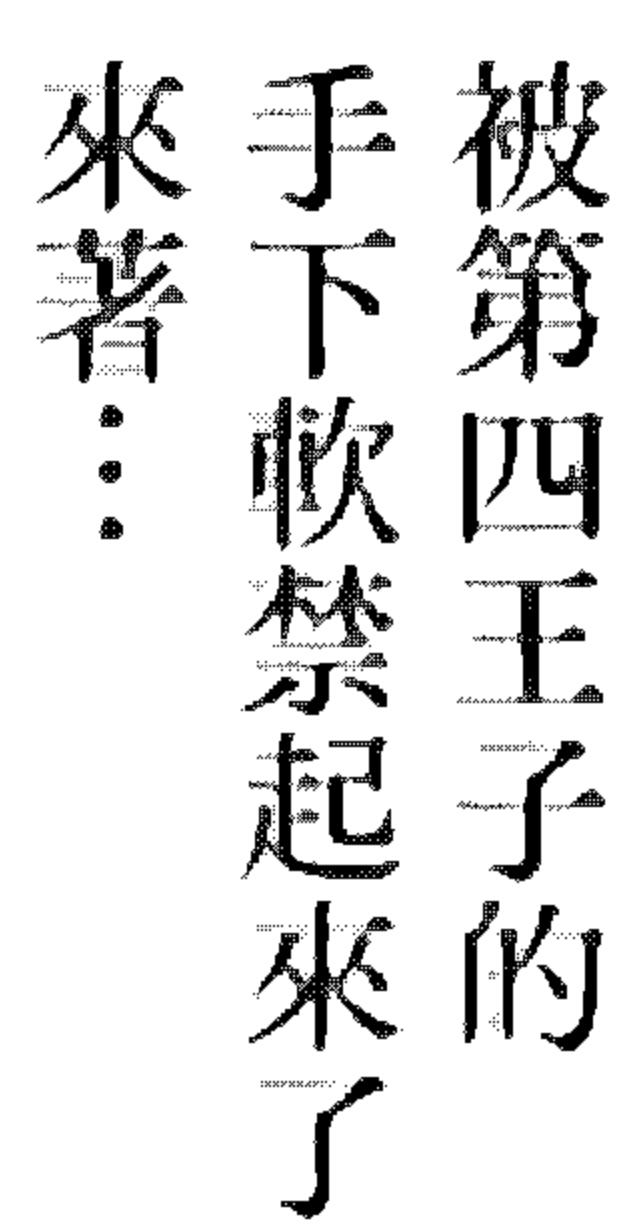 被第四王子的
手下軟禁起來了
來著…